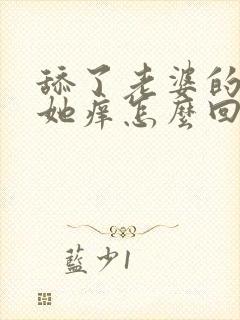 舔了老婆的
她痒怎麽回
藍少1